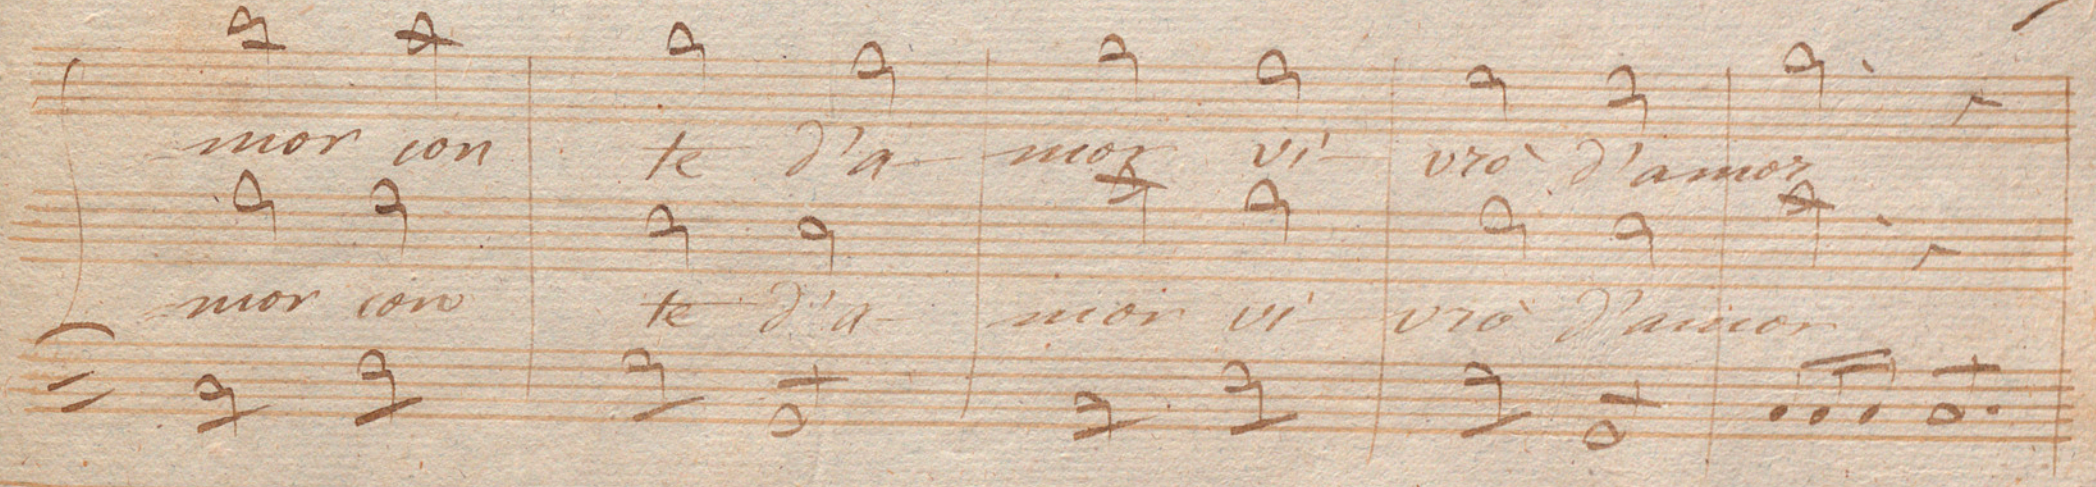 mor con te d'a- mor vi- vrò d'amor
mor con te d'a- mor vi- vrò d'amor